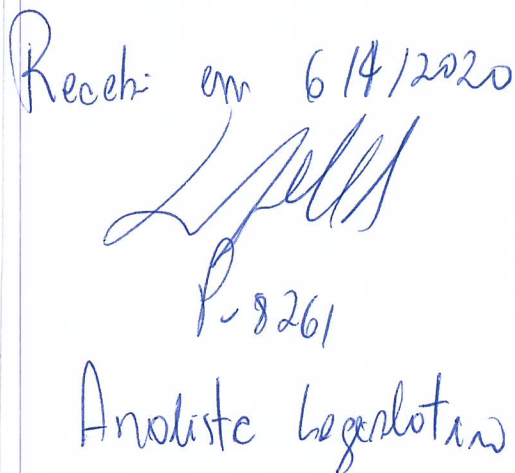 Recebi em 6/4/2020
P-8261
Analista Legislativo